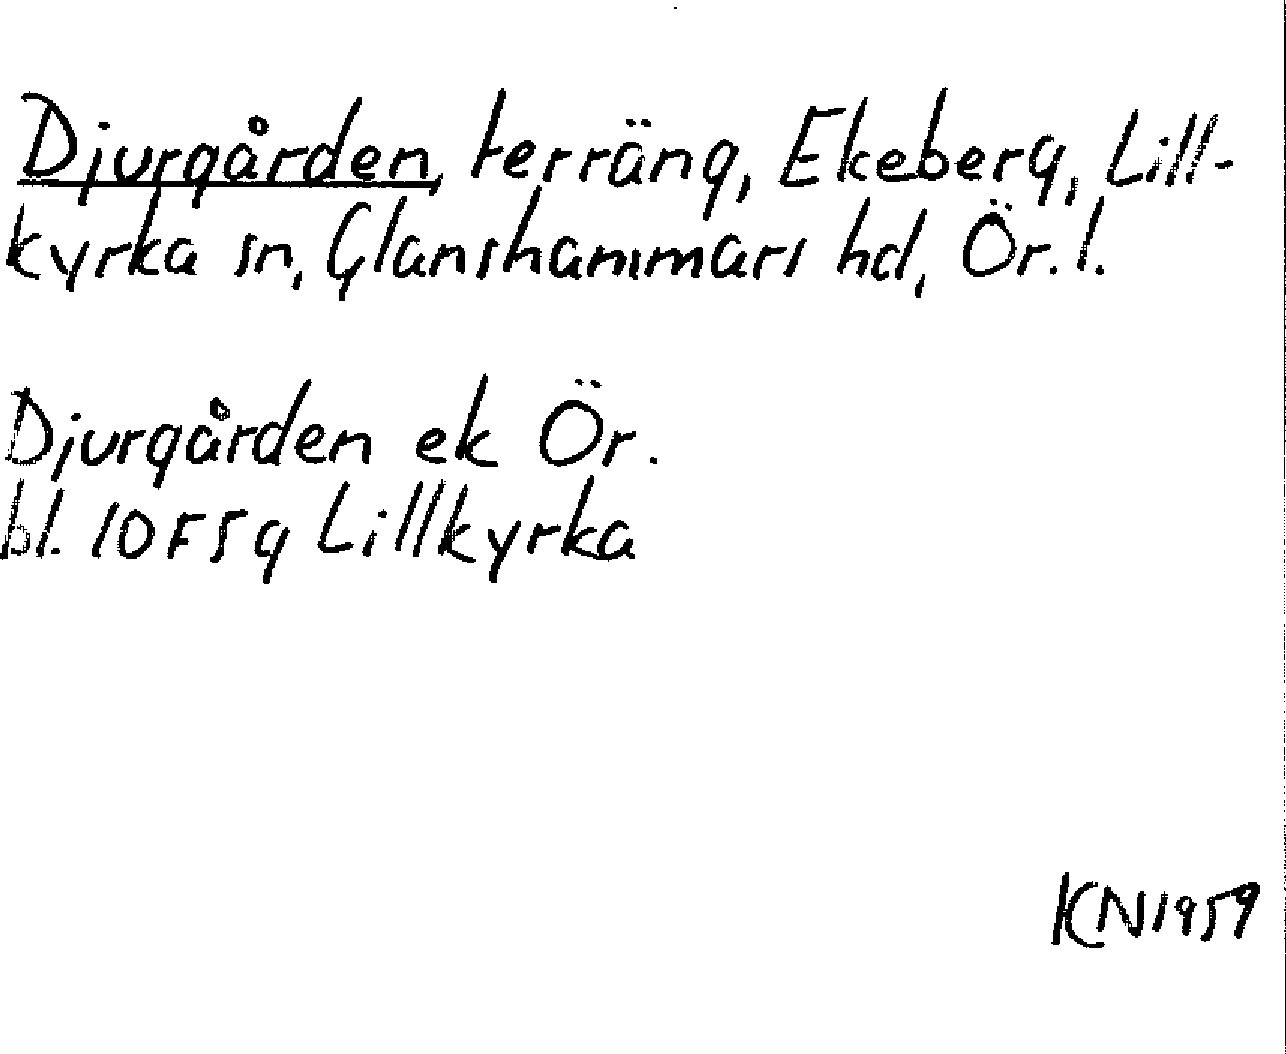 Djurgården, terräng, Ekeberg, Lill-
kyrka sn, Glanshammars hd, Ör. l.
Djurgården ek Ör.
bl. 10F5g Lillkyrka
KN1959